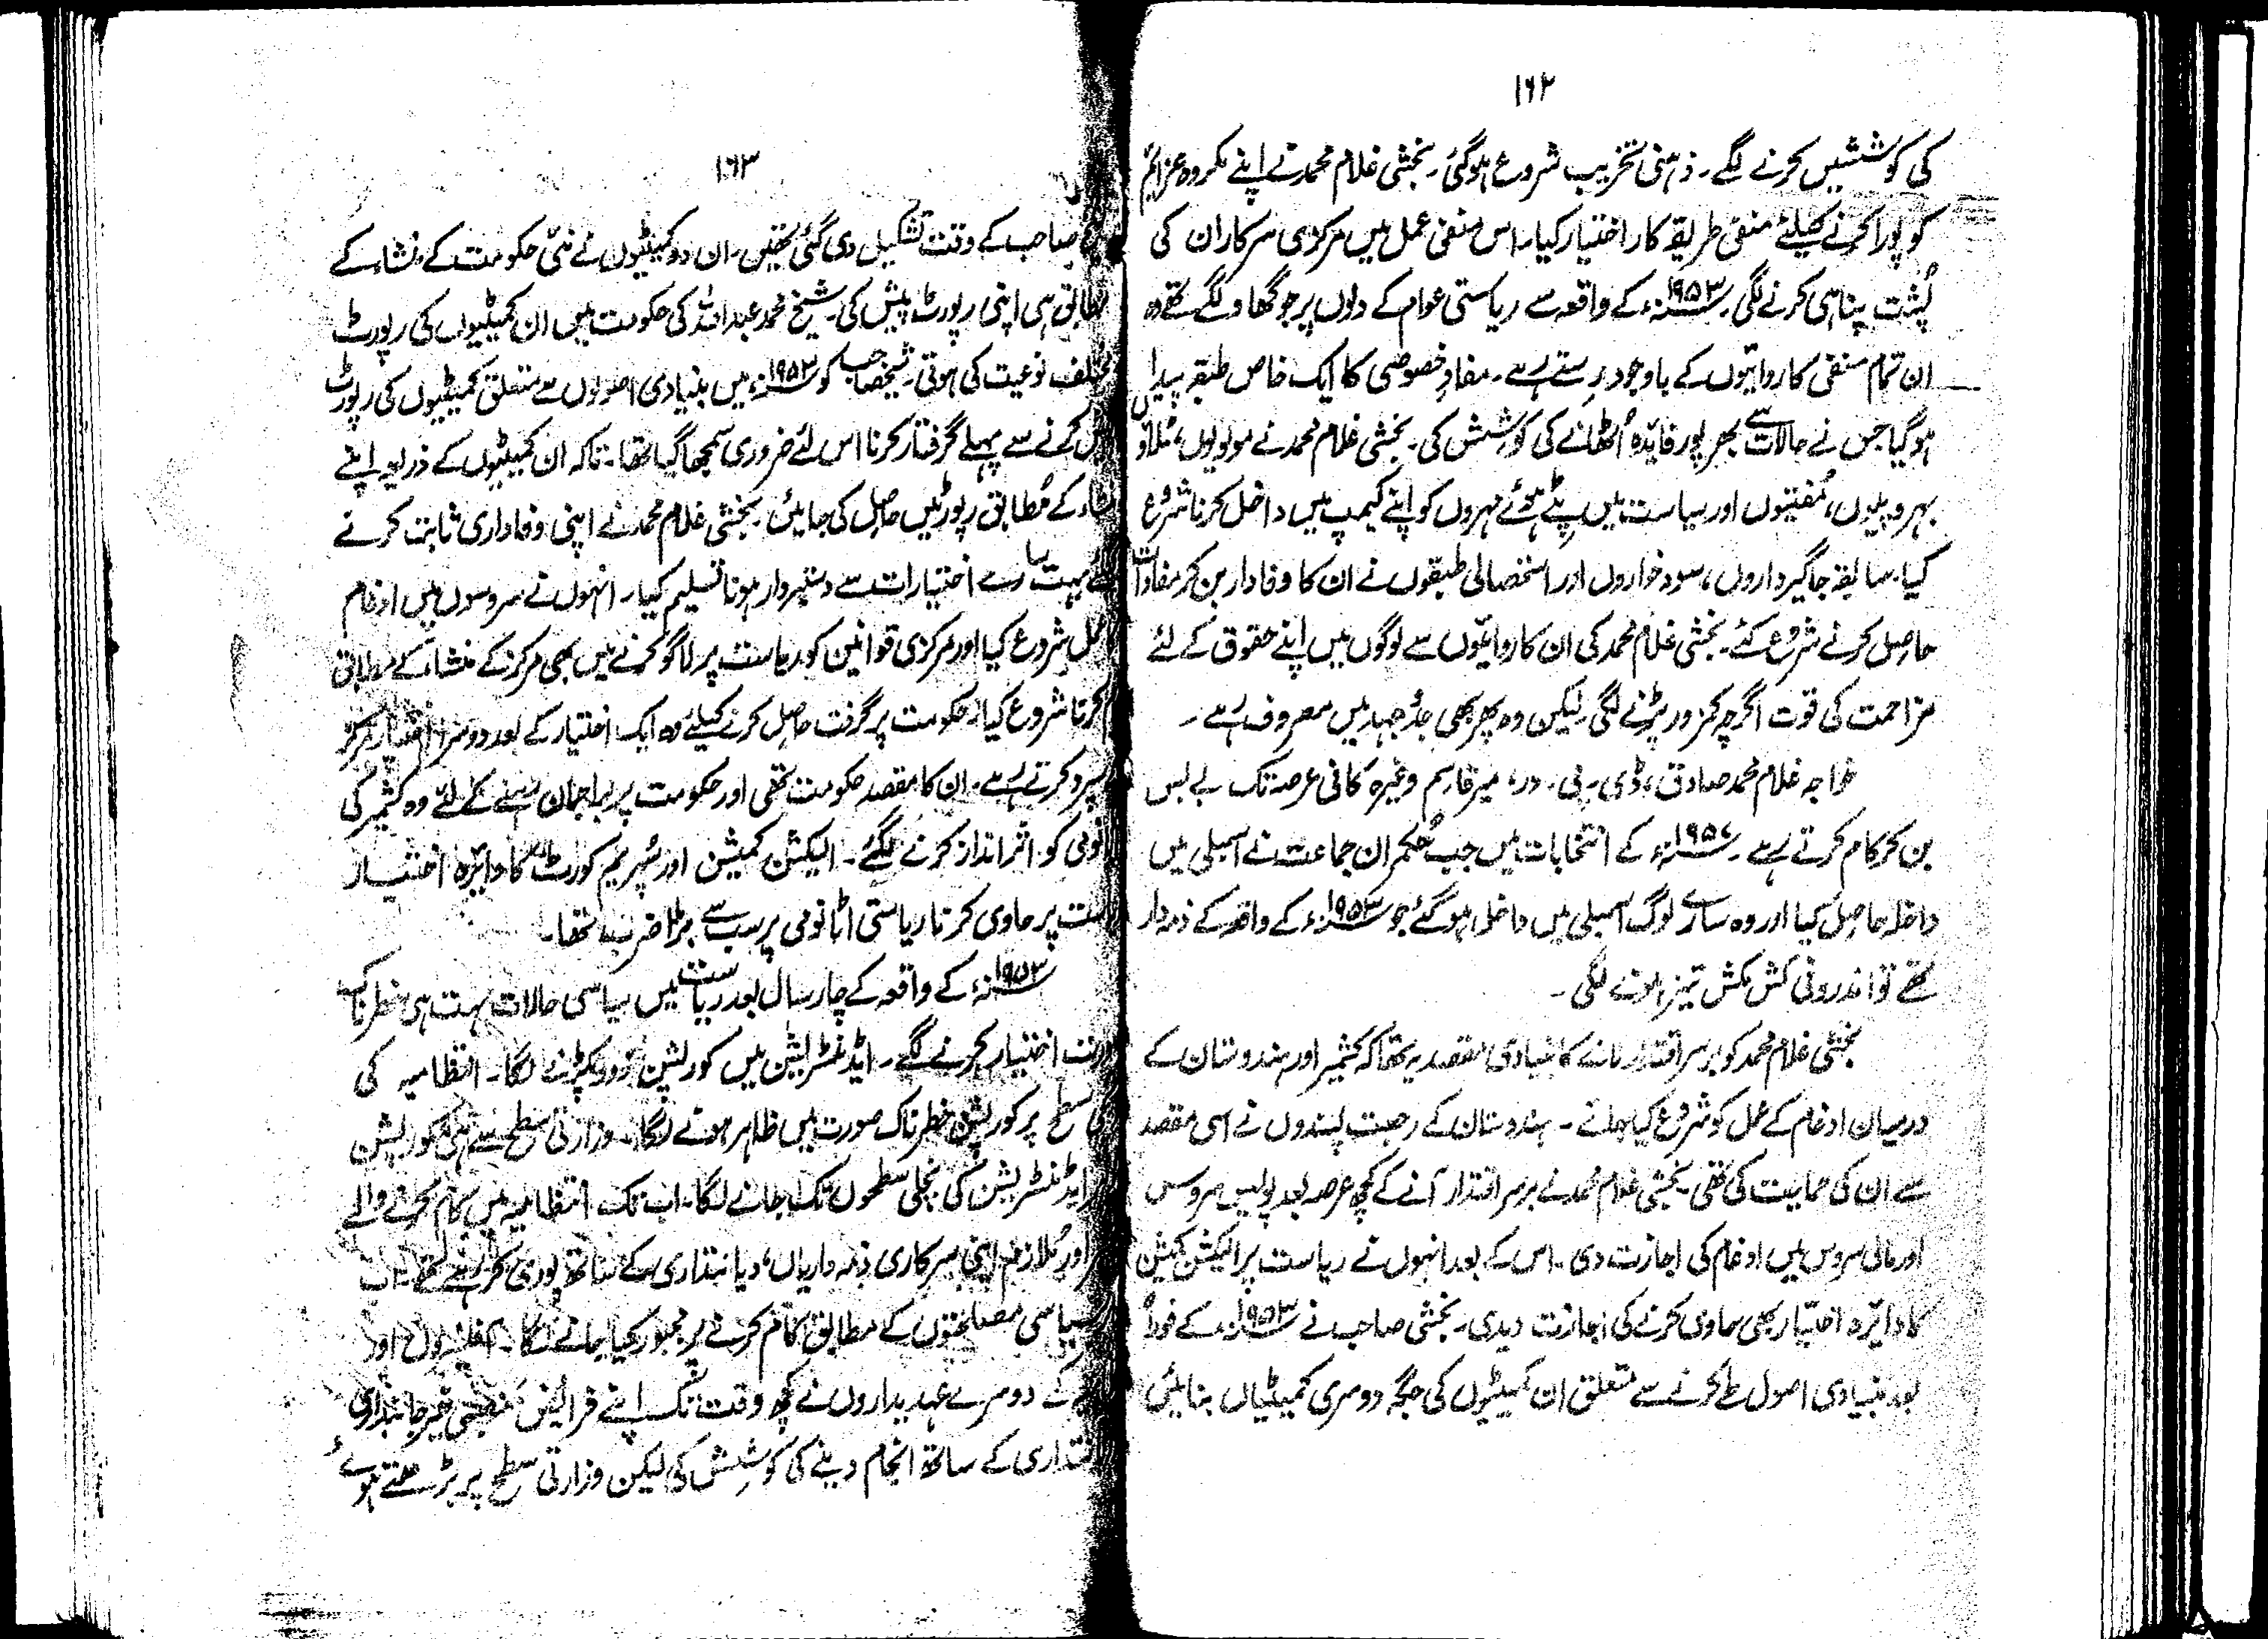 ۱۶۲
کی کوششیں کرنے لگے۔ ذہنی تخریب شروع ہوگئی۔ بخشی غلام محمد نے اپنے مکروہ عزائم
کو پورا کرنے کیلئے منفی طریقہ کار اختیار کیا۔ اس منفی عمل میں مرکزی سرکار ان کی
پُشت پناہی کرنے لگی۔ ۱۹۵۳ء کے واقعہ سے ریاستی عوام کے دلوں پر جو گھاو لگے تھے وہ
ان تمام منفی کاروائیوں کے باوجود رستے رہے۔ مفادِ خصوصی کا ایک خاص طبقہ پیدا
ہو گیا جس نے حالات سے بھر پور فائدہ اُٹھانے کی کوشش کی۔ بخشی غلام محمد نے مولویوں، مُلاؤں
بہروپیوں، مُفتیوں اور سیاست میں پٹے ہوئے مہروں کو اپنے کیمپ میں داخل کرنا شروع
کیا۔ سابقہ جاگیرداروں، سود خواروں اور استحصالی طبقوں نے ان کا وفادار بن کر مفادات
حاصل کرنے شروع کئے۔ بخشی غلام محمد کی ان کاروائیوں سے لوگوں میں اپنے حقوق کے لئے
مزاحمت کی قوت اگرچہ کمزور پڑنے لگی لیکن وہ پھر بھی جدوجہد میں مصروف رہے۔
خواجہ غلام محمد صادق، ڈی۔ پی۔ در، میر قاسم وغیرہ کافی عرصہ تک بے بس
بن کر کام کرتے رہے۔ ۱۹۵۷ء کے انتخابات میں جب حُکمران جماعت نے اسمبلی میں
داخلہ حاصل کیا اور وہ سارے لوگ اسمبلی میں داخل ہو گئے جو ۱۹۵۳ء کے واقعہ کے ذمہ دار
تھے تو اندرونی کش مکش تیز ہونے لگی۔
بخشی غلام محمد کو برسر اقتدار لانے کا بنیادی مقصد یہ تھا کہ کشمیر اور ہندوستان کے
درمیان ادغام کے عمل کو شروع کیا جائے۔ ہندوستان کے رجعت پسندوں نے اسی مقصد
سے ان کی حمایت کی تھی۔ بخشی غلام محمد نے برسر اقتدار آنے کے کچھ عرصہ بعد پولیس سروس
اور مالی سروس میں ادغام کی اجازت دی۔ اس کے بعد انہوں نے ریاست پر الیکشن کمیشن
کا دائرہ اختیار بھی حاوی کرنے کی اجازت دیدی۔ بخشی صاحب نے ۱۹۵۳ء کے فوراً
بعد بنیادی اصول طے کرنے سے متعلق ان کمیٹیوں کی جگہ دوسری کمیٹیاں بنائیں
۱۶۳
صاحب کے وقت تشکیل دی گئی تھیں۔ ان دو کمیٹیوں نے نئی حکومت کے منشاء کے
مطابق ہی اپنی رپورٹ پیش کی۔ شیخ محمد عبداللہ کی حکومت میں ان کمیٹیوں کی رپورٹ
مختلف نوعیت کی ہوتی۔ شیخ صاحب کو ۱۹۵۳ء میں بنیادی اصولوں سے متعلق کمیٹیوں کی رپورٹ
کرنے سے پہلے گرفتار کرنا اس لئے ضروری سمجھا گیا تھا۔ تاکہ ان کمیٹیوں کے ذریعہ اپنے
منشاء کے مُطابق رپورٹیں حاصل کی جائیں۔ بخشی غلام محمد نے اپنی وفاداری ثابت کرنے
بہت سارے اختیارات سے دستبردار ہونا تسلیم کیا۔ انہوں نے سروسوں میں ادغام
عمل شروع کیا اور مرکزی قوانین کو ریاست پر لاگو کرنے میں بھی مرکز کے منشاء کے مطابق
کرنا شروع کیا۔ حکومت پر گرفت حاصل کرنے کیلئے وہ ایک اختیار کے بعد دوسرا اختیار مرکز
سپرد کرتے رہے۔ ان کا مقصد حکومت تھی اور حکومت پر براجمان رہنے کے لئے وہ کشمیر کی
کو اثر انداز کرنے لگے۔ الیکشن کمیشن اور سُپریم کورٹ کا دائرہ اختیار
پر حاوی کرنا ریاستی اٹانومی پر سب سے بڑا ضرب تھا۔
۱۹۵۳ء کے واقعہ کے چار سال بعد ریاست میں سیاسی حالات بہت ہی خطرناک
اختیار کرنے لگے۔ ایڈمنسٹریشن میں کورپشن زور پکڑنے لگا۔ انتظامیہ کی
سطح پر کورپشن خطرناک صورت میں ظاہر ہونے لگا۔ وزارتی سطح سے ہی کورپشن
ایڈمنسٹریشن کی نچلی سطحوں تک جانے لگا۔ اب تک انتظامیہ میں کام کرنے والے
اور مُلازم اپنی سرکاری ذمہ داریاں، دیانتداری کے ساتھ پوری کر رہے تھے۔ اب
سیاسی مصلحتوں کے مطابق کام کرنے پر مجبور کیا جانے لگا۔ آفیسروں اور
کے دوسرے عہدیداروں نے کچھ وقت تک اپنے فرائض منصبی غیر جانبداری
کے ساتھ انجام دینے کی کوشش کی لیکن وزارتی سطح پر بڑھتے ہوئے